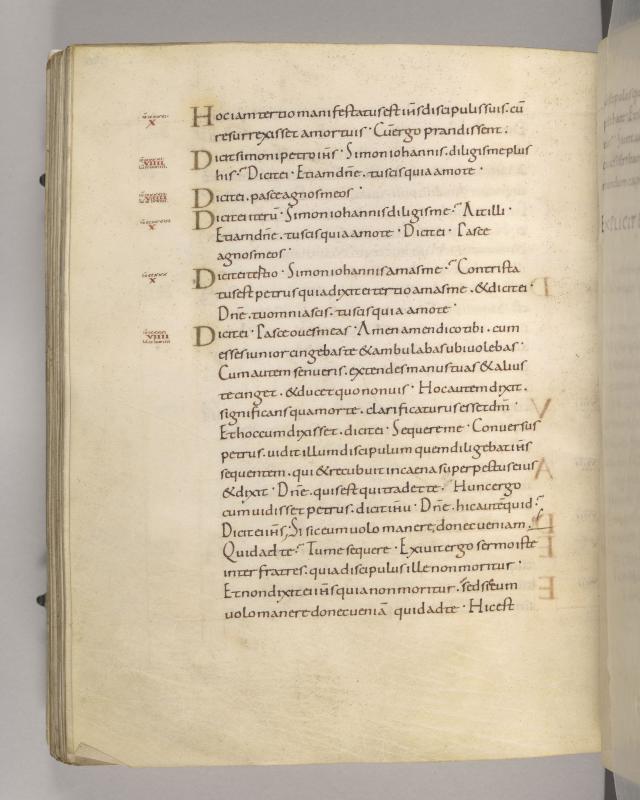 Hoc iam tertio manifestatus est ih̄s discipulis suis. cū
resurrexisset amortuis · Cū ergo prandissent.
X
Dicit simoni petro ih̄s · Simon iohannis. diligis me plus
his? Dicit ei · Etiam dn̄e. tu scis quia amo te ·
VIIII
Dicit ei. pasce agnos meos ·
VIIII
Dicit ei iterū · Simon iohannis diligis me? Ait illi ·
X
Etiam dn̄e. tu scis quia amo te · Dicit ei · Pasce
agnos meos ·
Dicit ei tertio · Simon iohannis amas me? Contrista
X
tus est petrus quia dixit ei tertio amas me. & dicit ei ·
Dn̄e. tu omnia scis. tu scis quia amo te ·
Dicit ei · Pasce oves meas · Amen amen dico tibi. cum
VIIII
esses iunior cingebas te & ambulabas ubi volebas ·
Cum autem senueris. extendes manus tuas & alius
te cinget. & ducet quo non uis · Hoc autem dixit.
significans qua morte. clarificaturus esset dm̄ ·
Et hoc cum dixisset. dicit ei · Sequere me · Conversus
petrus. uidit illum discipulum quem diligebat ih̄s
sequentem. qui & recubuit in caena super pectus eius
& dixit · Dn̄e. quis est qui tradet te? Hunc ergo
cum uidisset petrus. dicit ih̄u · Dn̄e. hic autē quid?
Dicit ei ih̄s; Si sic eum uolo manere, donec veniam.
Quid ad te? Tu me sequere · Exivit ergo sermo iste
inter fratres. quia discipulus ille non moritur ·
Et non dixit ei ih̄s quia non moritur. sed si eum
uolo manere donec veniā quid ad te · Hic est